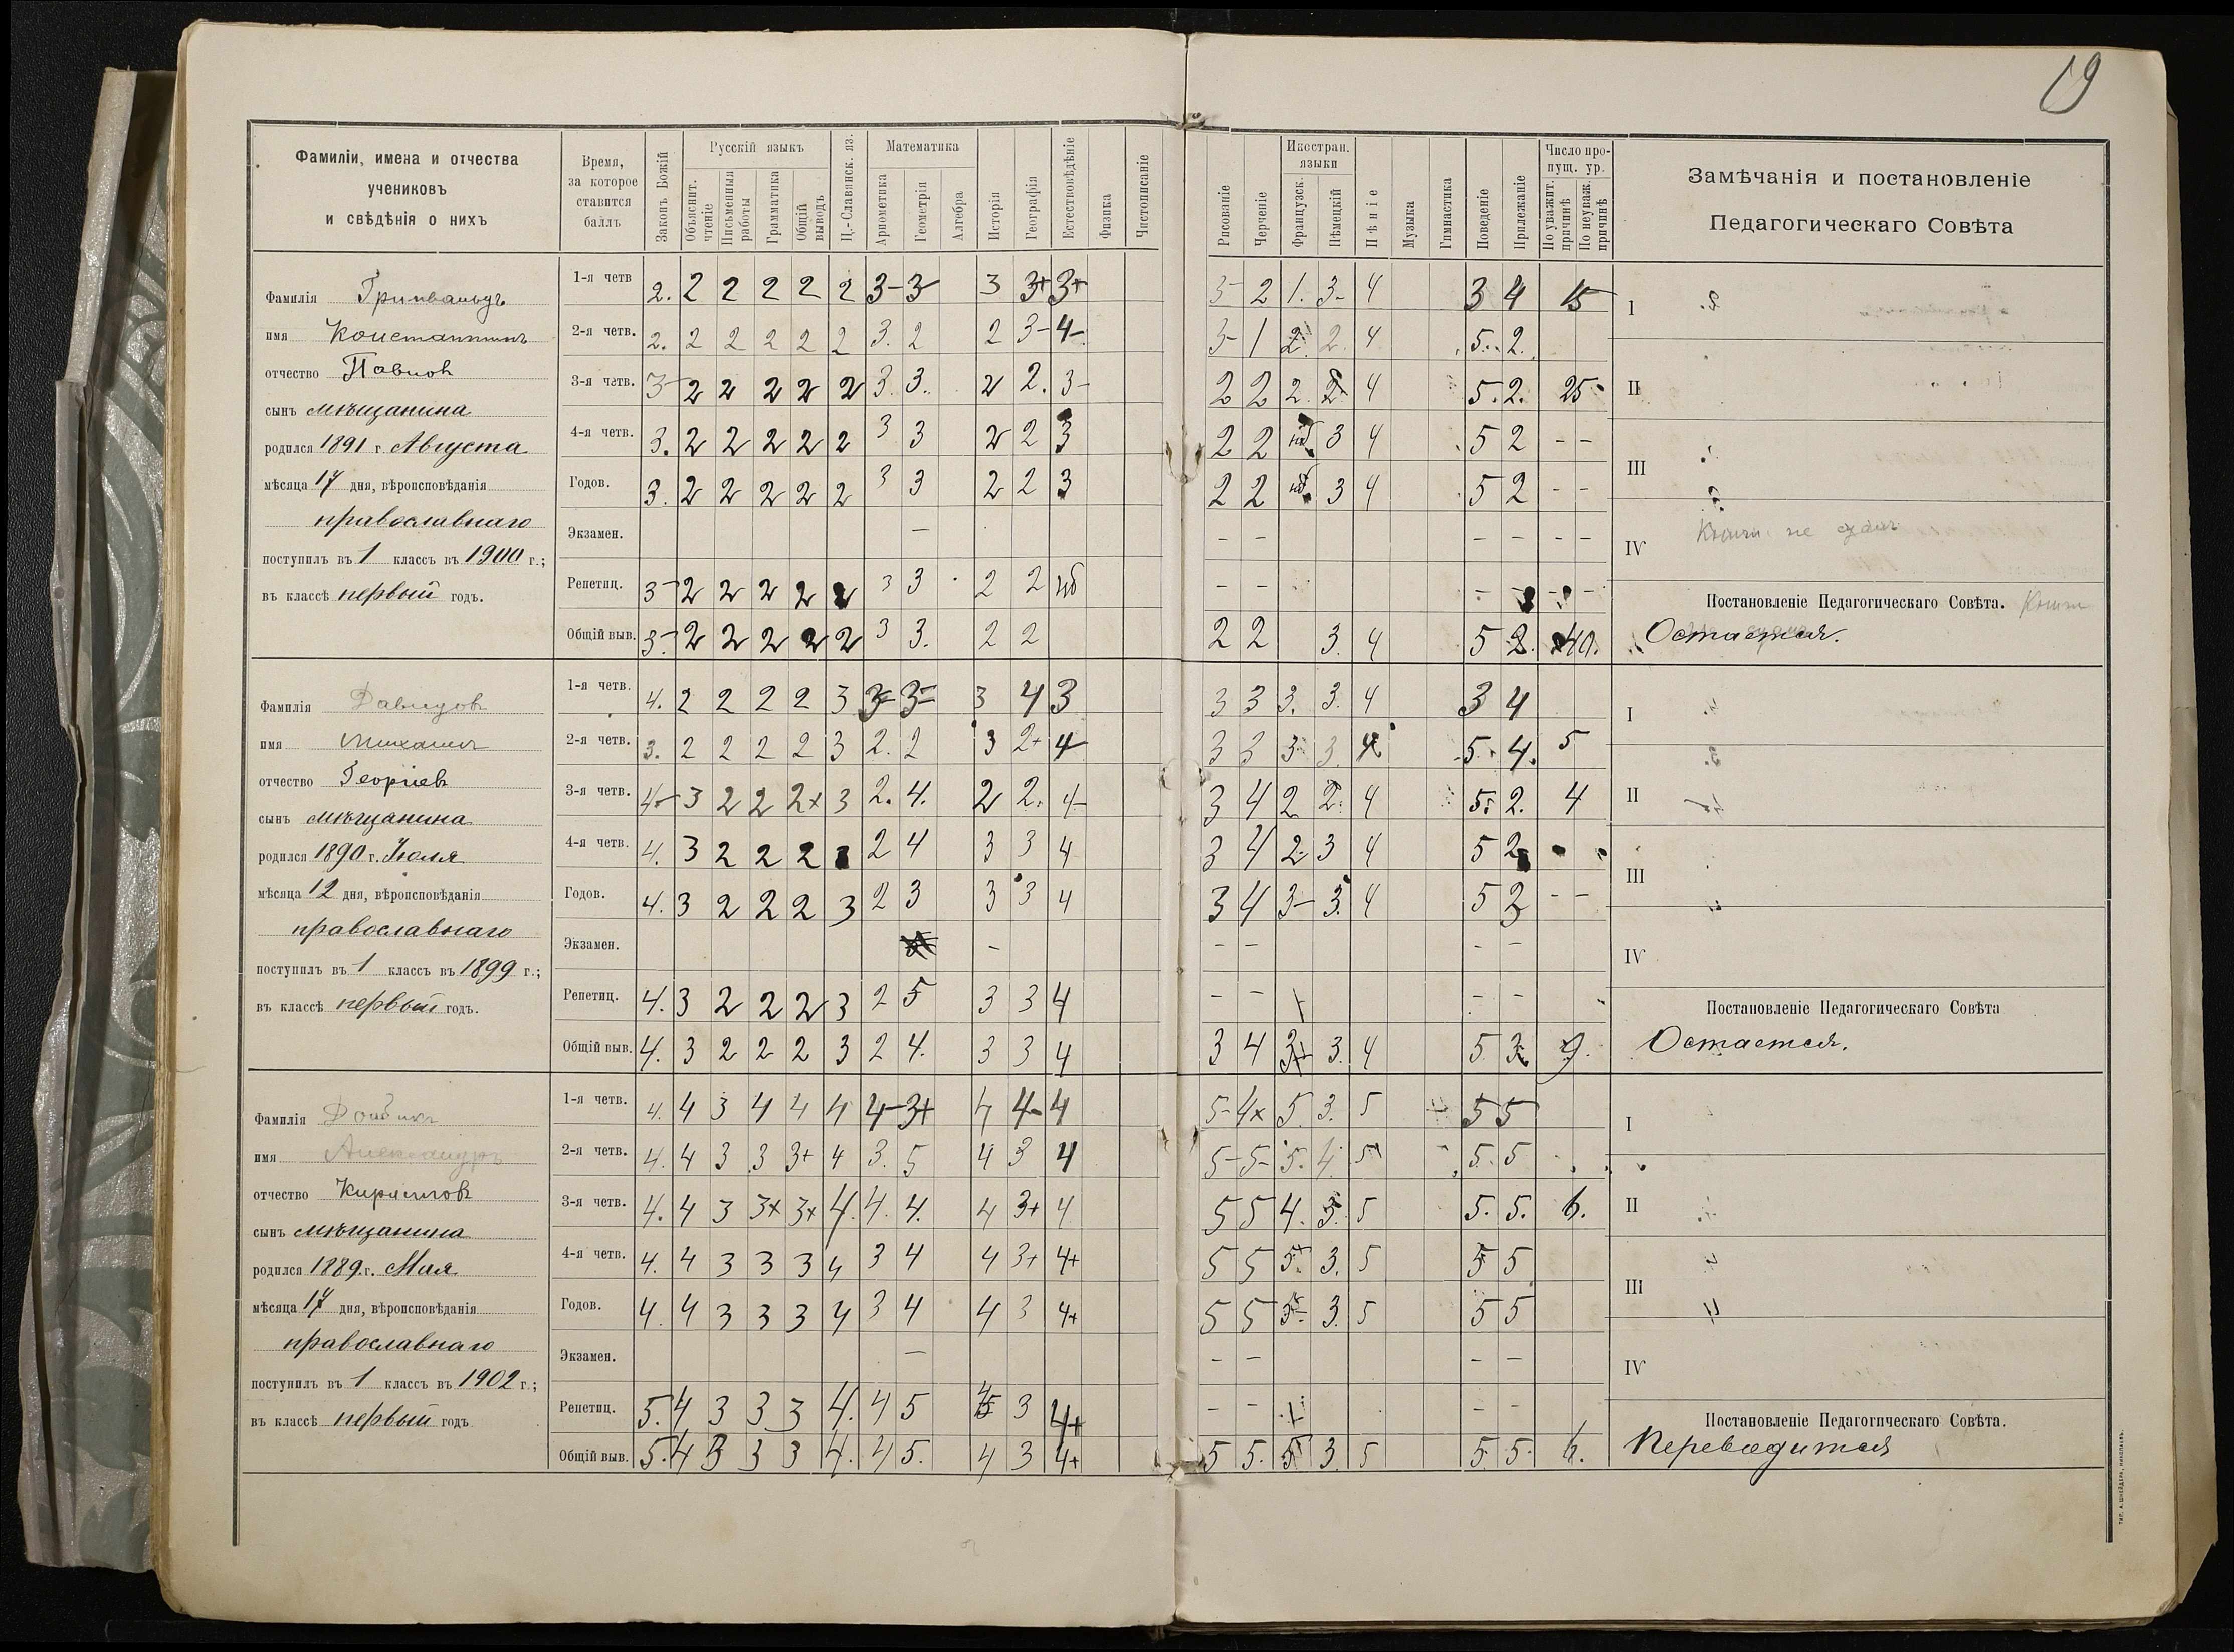 19
Фамиліи, имена и отчества
учениковъ
и свѣдѣнія о нихъ
Время,
за которое
ставится
баллъ
Законъ Божій
Русскій языкъ
Объяснит. чтеніе
Письменныя работы
Грамматика
Общій выводъ
Ц.-Славянск. яз.
Математика
Ариѳметика
Геометрія
Алгебра
Исторія
Географія
Естествовѣдѣніе
Физика
Чистописаніе
Рисованіе
Черченіе
Иностран. языки
Французск.
Нѣмецкій
Пѣніе
Музыка
Гимнастика
Поведеніе
Прилежаніе
Число пропущ. ур.
По уважит. причинѣ
По неуваж. причинѣ
Замѣчанія и постановленіе
Педагогическаго Совѣта
Фамилія
имя Константинъ
отчество Павловъ
сынъ мѣщанина
родился 1891 г. Августа
мѣсяца 17 дня, вѣроисповѣданія
православнаго
поступилъ въ 1 классъ въ 1900 г.;
въ классѣ первый годъ.
1-я четв 2. 2 2 2 2 2 3- 3- 3 3+ 3+ 3- 2 1. 3- 4 3 4 15
2-я четв. 2. 2 2 2 2 2 3. 2 2 3- 4- 3- 1 2. 2. 4 5. 2.
3-я четв. 3- 2 2 2 2 2 3. 3. 2 2. 3- 2 2 2. 2 4 5. 2. 25
4-я четв. 3. 2 2 2 2 2 3 3 2 2 3 2 2 нб 3 4 5 2 - -
Годов. 3. 2 2 2 2 2 3 3 2 2 3 2 2 нб 3 4 5 2 - -
Экзамен. — - - - - - -
Репетиц. 3- 2 2 2 2 2 3 3 2 2 нб - - - - -
Общій выв. 3- 2 2 2 2 2 3 3. 2 2 2 2 3. 4 5 2. 40.
I
II
III
IV не
Постановленіе Педагогическаго Совѣта.
Остается.
Фамилія Давидовъ
имя Михаилъ
отчество Георгіевъ
сынъ мѣщанина
родился 1890 г. Іюля
мѣсяца 12 дня, вѣроисповѣданія
православнаго
поступилъ въ 1 классъ въ 1899 г.;
въ классѣ первый годъ.
1-я четв. 4. 2 2 2 2 3 3- 3- 3 4 3 3 3 3. 3. 4 3 4
2-я четв. 3. 2 2 2 2 3 2. 2 3 2+ 4- 3 3 3- 3. 4 5. 4. 5
3-я четв. 4- 3 2 2 2+ 3 2. 4. 2 2. 4- 3 4 2 2. 4 5. 2. 4
4-я четв. 4. 3 2 2 2 3 2 4 3 3 4 3 4 2- 3 4 5 2
Годов. 4. 3 2 2 2 3 2 3 3 3 4 3 4 3- 3. 4 5 2 - -
Экзамен. - - - - -
Репетиц. 4. 3 2 2 2 3 2 5 3 3 4 - - - -
Общій выв. 4. 3 2 2 2 3 2 4. 3 3 4 3 4 3 3. 4 5 3 9.
I
II
III
IV
Постановленіе Педагогическаго Совѣта
Остается.
Фамилія
имя Александръ
отчество Кирилловъ
сынъ мѣщанина
родился 1889 г. Мая
мѣсяца 17 дня, вѣроисповѣданія
православнаго
поступилъ въ 1 классъ въ 1902 г.;
въ классѣ первый годъ
1-я четв. 4. 4 3 4 4 4 4- 3+ 4 4- 4 5- 4+ 5 3. 5 5 5
2-я четв. 4. 4 3 3 3+ 4 3. 5 4 3 4 5- 5- 5. 4. 5 5. 5
3-я четв. 4. 4 3 3+ 3+ 4. 4. 4. 4 3+ 4 5 5 4. 3. 5 5. 5. 6.
4-я четв. 4. 4 3 3 3 4 3 4 4 3+ 4+ 5 5 5 3. 5 5 5
Годов. 4. 4 3 3 3 4 3 4 4 3 4+ 5 5 5- 3. 5 5 5
Экзамен. — - - - -
Репетиц. 5. 4 3 3 3 4. 4 5 3 4+ - - - -
Общій выв. 5. 4 3 3 3 4. 4 5. 4 3 4+ 5 5. 5 3. 5 5. 5. 6.
I
II
III
IV
Постановленіе Педагогическаго Совѣта.
Переводится